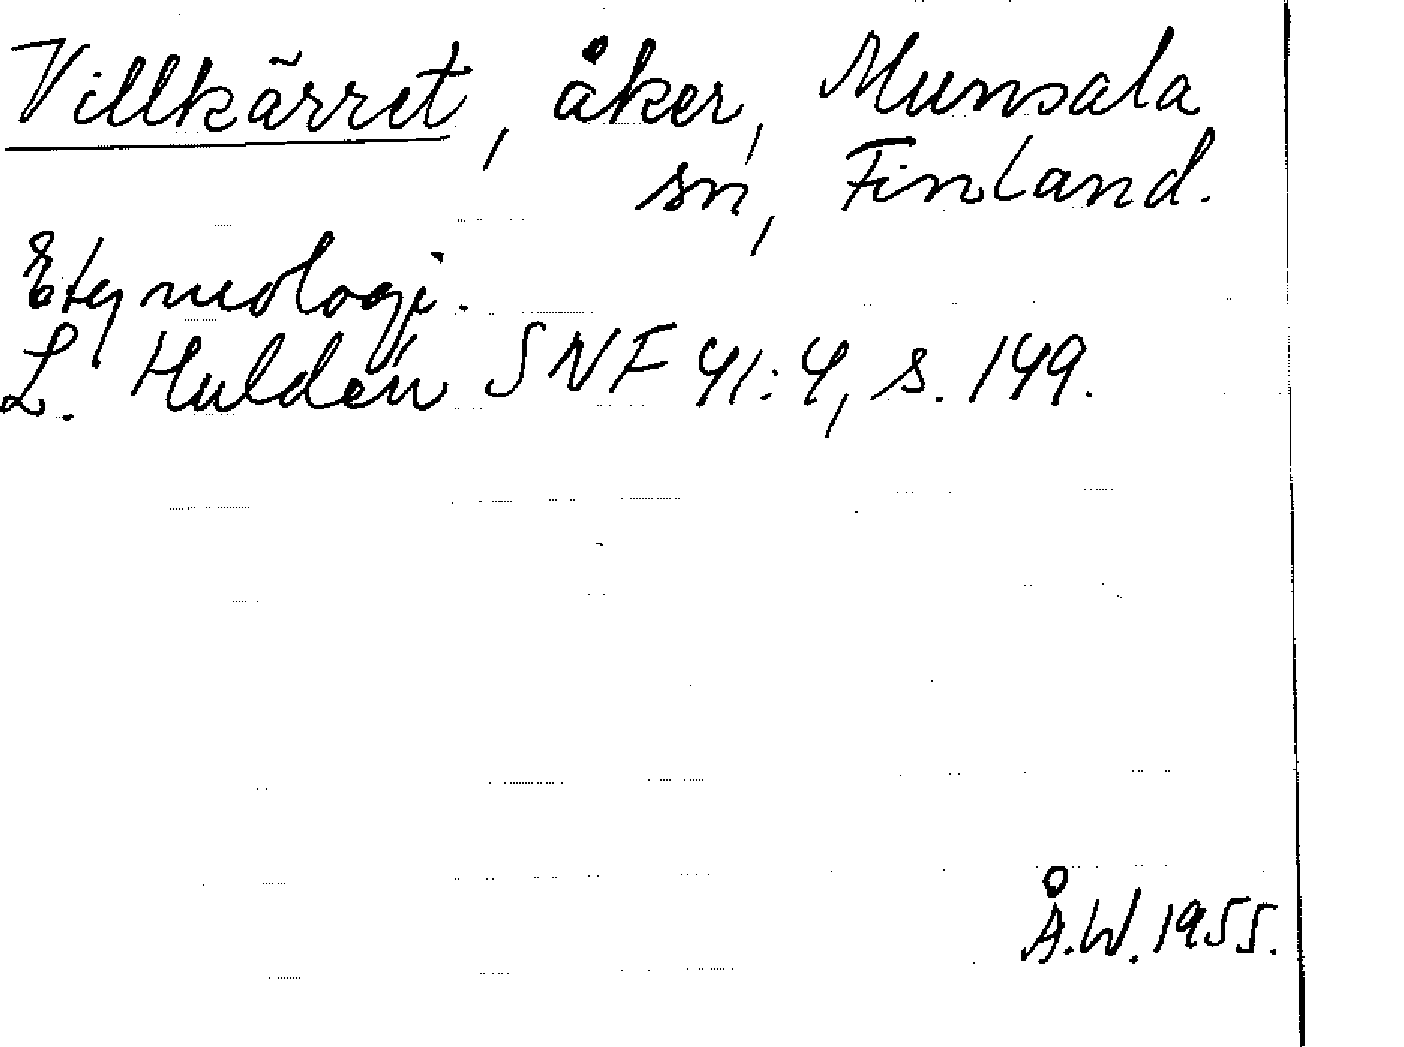 Villkärret, åker, Munsala
sn, Finland.
Etymologi.
L. Huldén SNF 41:4, s. 149.
Å.W. 1955.